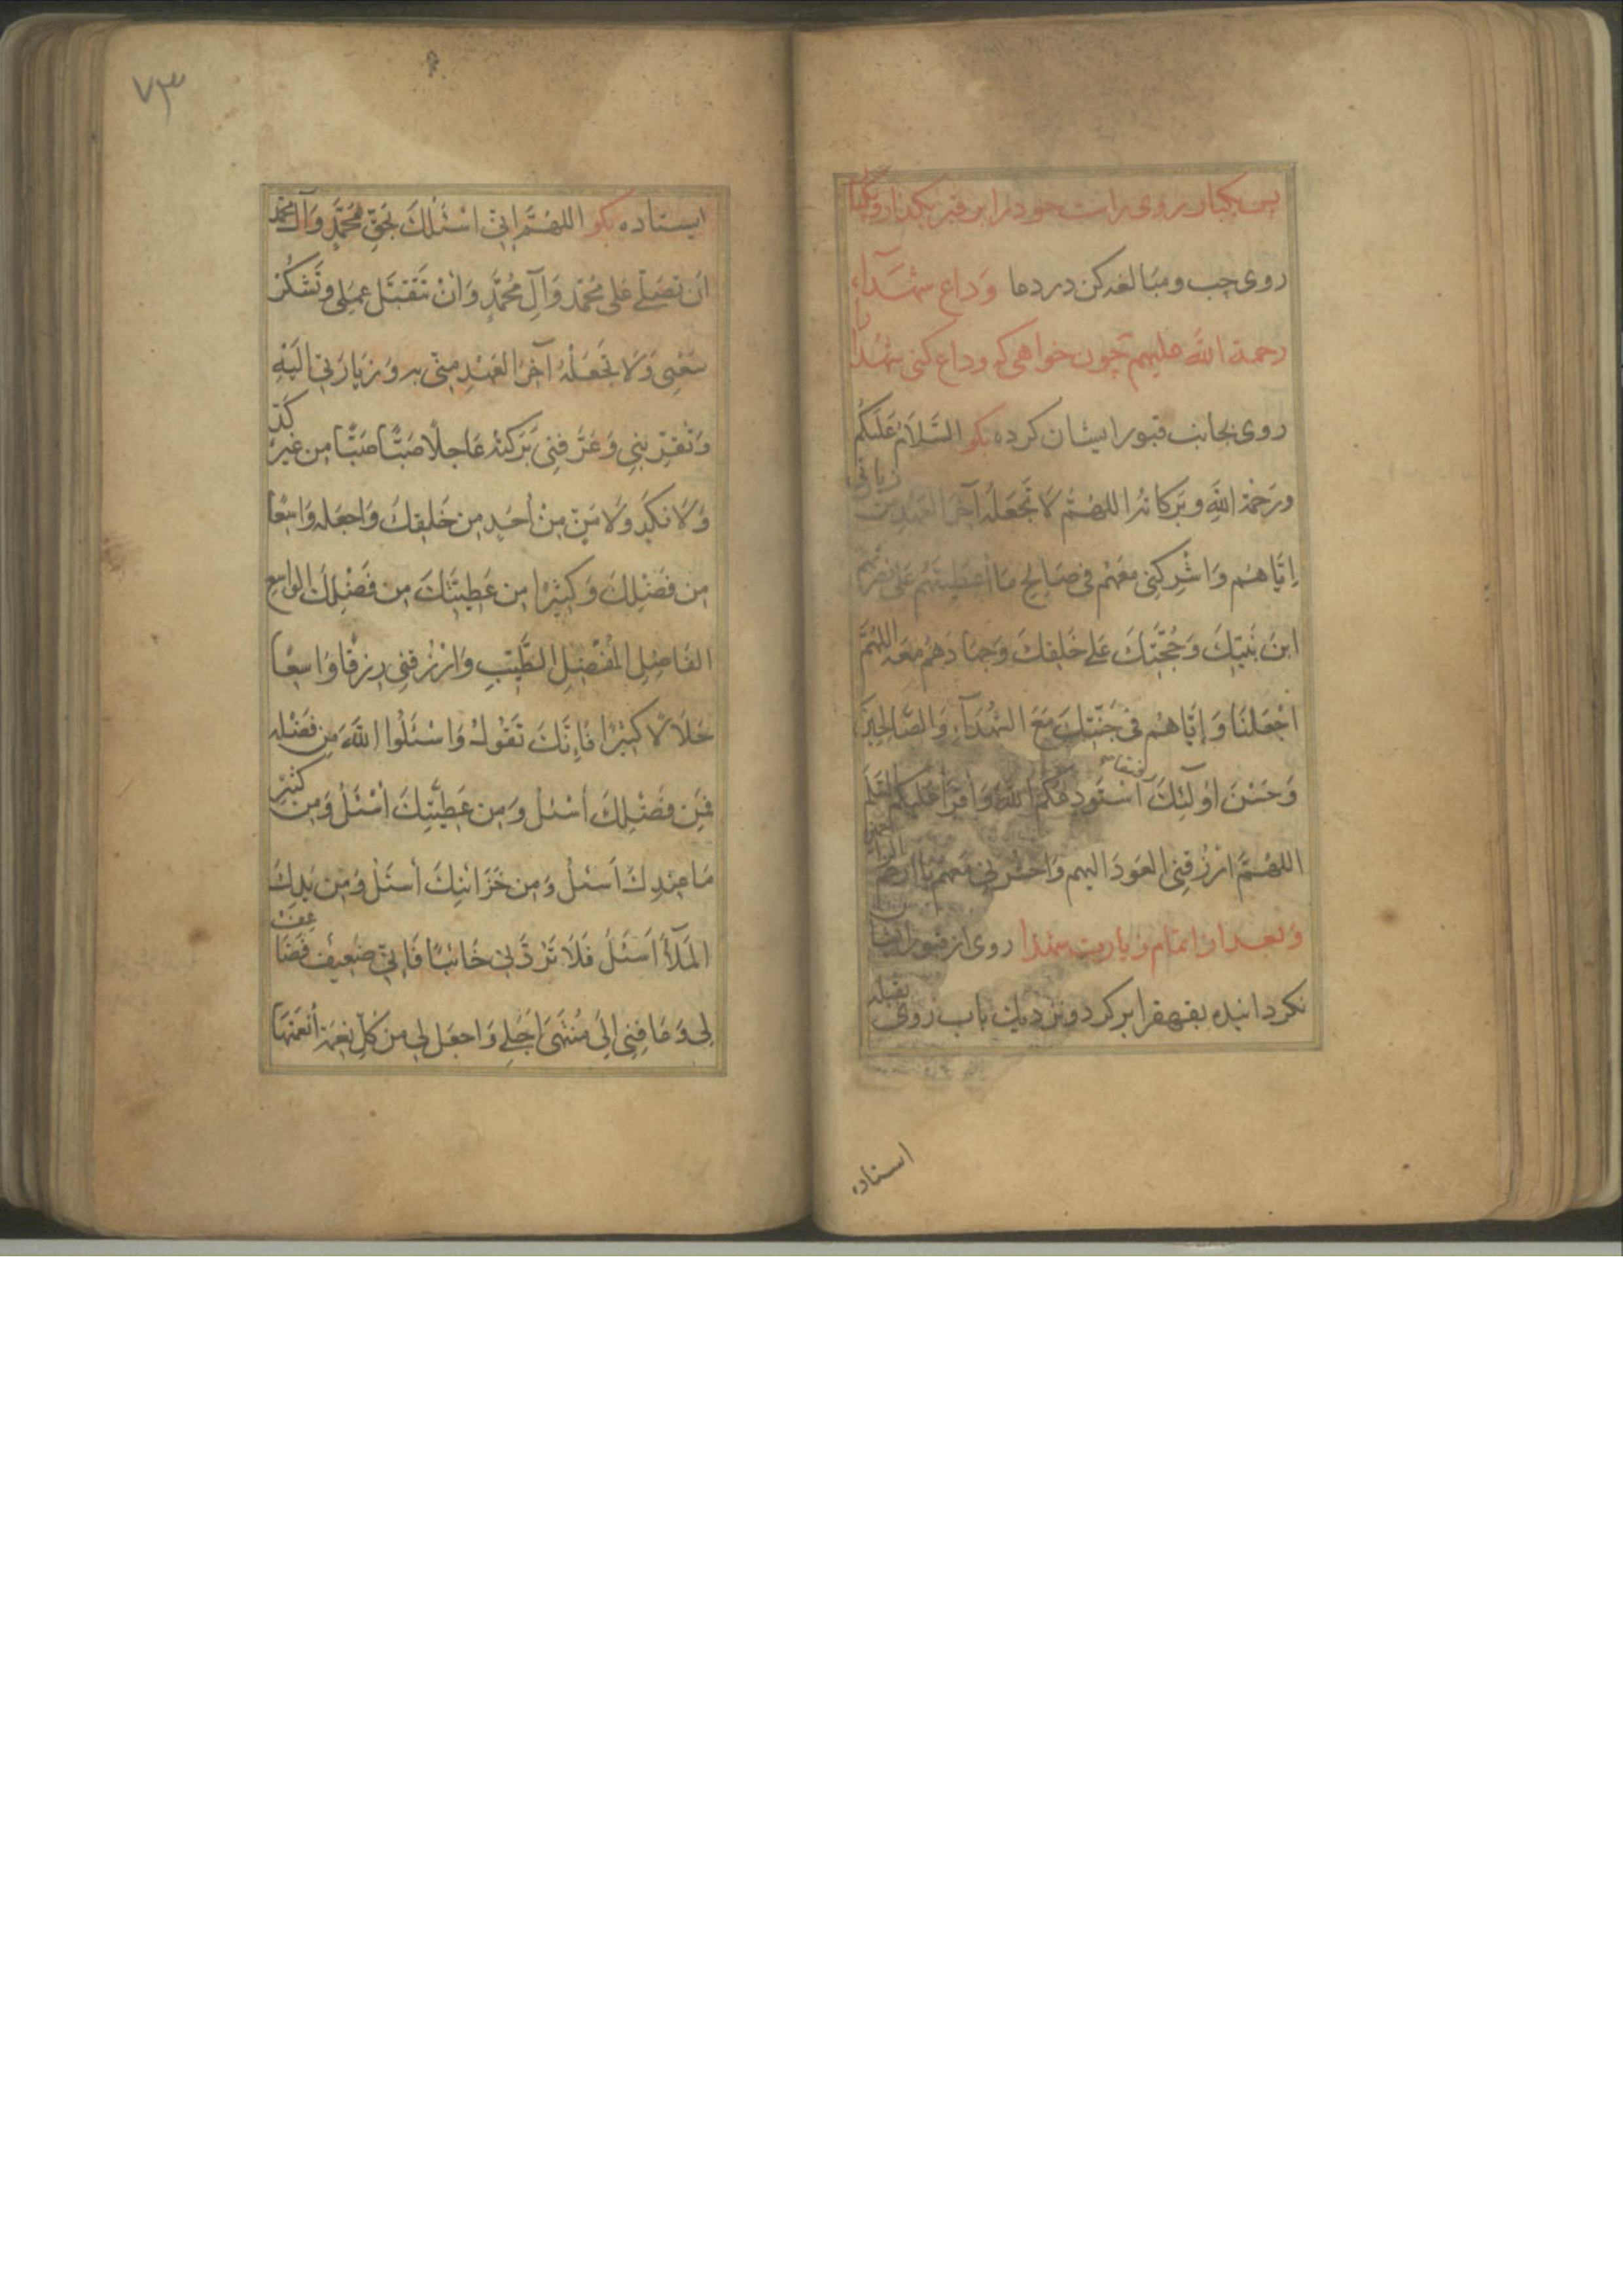 پس یکبار روی راست خود را بر قبر بگذار و یکبار
روی چپ و مبالغه کن در دعا وداع شهدآء
رحمة الله علیهم چون خواهی که وداع کنی شهدا را
روی بجانب قبور ایشان کرده بکو السَّلَامُ عَلَیکُم
ورَحْمَة اللهِ وبَرَکاتُه اللهُمَّ لَا تَجعَلهُ آخِرَ العَهدِ من زیارتی
اِیَّاهُم وَاشْرِکنِی مَعَهُم فی صَالِحِ مَا أعطَیتَهُم عَلی نصرَتهم
ابنَ بنتِ نَبِیِّكَ وَحُجَّتِكَ عَلی خَلقِكَ وَجِهَادَهُم مَعَه اللهُمَّ
اجْعَلنَا وَاِیَّاهُم فی جَنَّتِكَ مَعَ الشُّهَدَآءِ وَالصَّالِحِینَ
وَحَسُنَ اوُلَئِكَ رفیقا اَسْتَودِعُکُم اللهَ وَاَقرَأُ عَلَیکُم السَّلَامَ
اللهُمَّ ارْزُقنِی العَودَ الیهم وَاحشُرنِی مَعَهم یا ارحم الراحمین
وبعد از اتمام زیارت شهدا روی از قبور ایشان
نکردانیده بقهقرا برکرد ونزدیك باب روی بقبله
استاده
٧٣
ایستاده بکو اللهُمَّ اِنِّی اَسْئَلُكَ بِحَقِّ مُحَمَّدٍ وَآلِ مُحَمَّد
اَن تُصَلِّیَ عَلی مُحَمَّد وَآلِ مُحَمَّدٍ وَاَنْ تَتَقَبَّلَ عَمَلِی وَتَشکُرَ
سَعْیِی وَلَا تَجعَلْهُ آخِرَ العَهْدِ مِنِّی بِه وَزِیَارَتِی اِلَیْهِ
وَتُقِرّبنِی وَعَرّفنِی بَرَکَتَهُ عَاجِلًا صَبًّا صَبًّا مِن غَیرِ کَدٍّ
وَلَا نَکَدٍ وَلَا مَنٍّ مِنْ أحَدٍ مِن خَلقِكَ وَاجعَله وَاسِعًا
مِن فَضْلِكَ وَکَثِیرًا مِن عَطِیَّتِكَ مِن فَضْلِكَ الوَاسِعِ
الفَاضِلِ المُفْضِلِ الطَّیِّبِ وَارْزُقنِی رِزقًا وَاسِعًا
حَلَالًا کَثِیرًا فَاِنَّكَ تَقُولُ وَاسْئَلُوا اللهَ مِن فَضْلِه
فَمِن فَضْلِكَ أسْئَلُ وَمِن عَطِیَّتِكَ أسْئَلُ وَمِن کَثِیرِ
مَا عِندِكَ اَسئَلُ وَمِن خَزَائنِكَ اَسئَلُ وَمِن یَدِكَ
المَلأ أسئَلُ فَلَا تَرُدَّنِی خَائبًا فَاِنِّی ضَعِیف فَضَاعِف
لِی وَعَافِنِی اِلَی مُنتَهَی اَجَلِی وَاجعَل لِی مِن کُلِّ نِعمَة أنعَمتَهَا